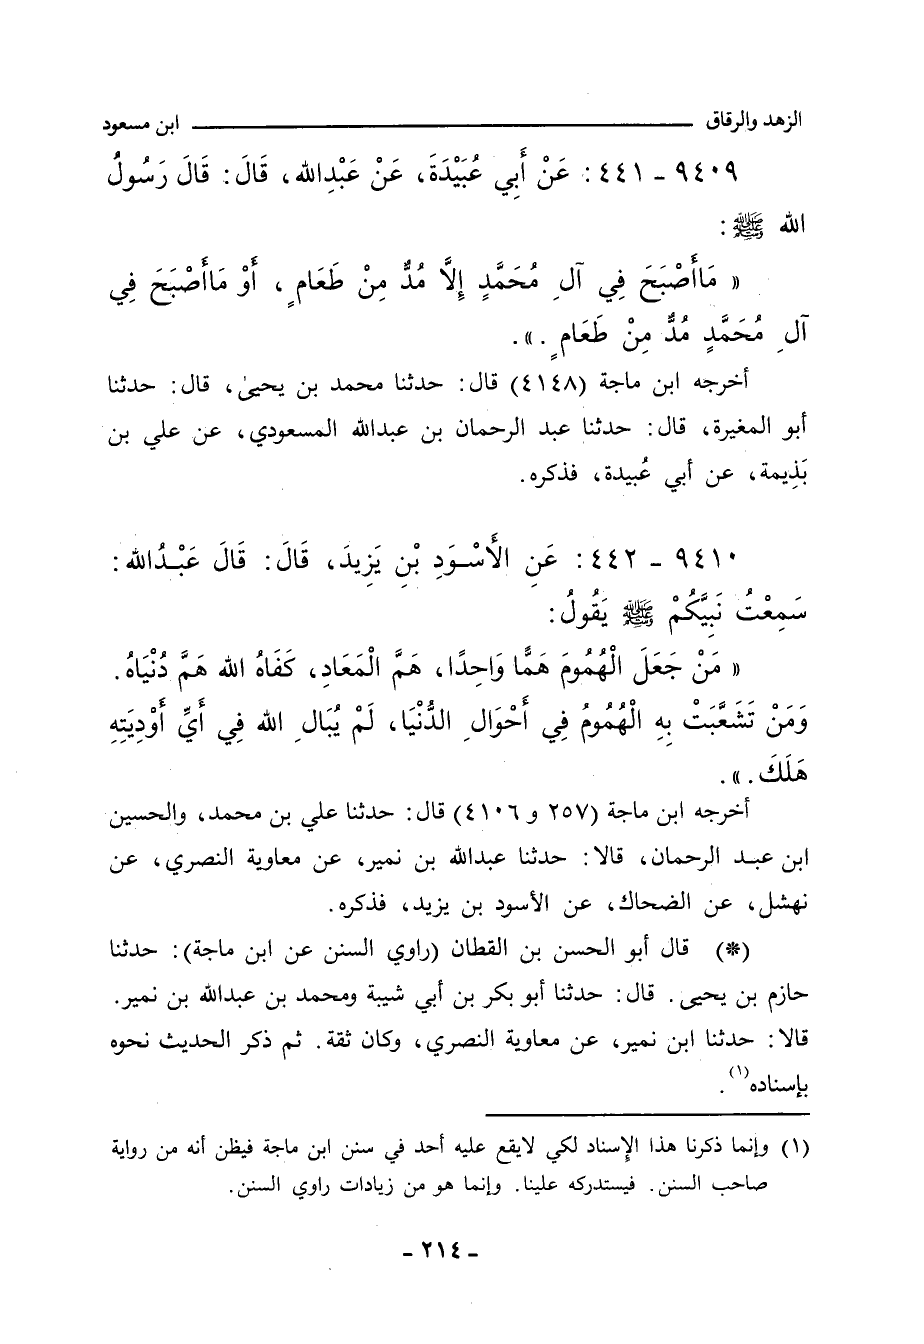 الزهد والرقاق ابن مسعود
٩٤٠٩ - ٤٤١ : عَنْ أَبِي عُبَيْدَةَ، عَنْ عَبْدِالله، قَالَ: قَالَ رَسُولُ
الله ﷺ :
« مَاأَصْبَحَ فِي آلِ مُحَمَّدٍ إِلَّا مُدٌّ مِنْ طَعَامٍ ، أَوْ مَاأَصْبَحَ فِي
آلِ مُحَمَّدٍ مُدٌّ مِنْ طَعَامٍ . ».
أخرجه ابن ماجة (٤١٤٨) قال: حدثنا محمد بن يحيىٰ، قال: حدثنا
أبو المغيرة، قال: حدثنا عبد الرحمان بن عبدالله المسعودي، عن علي بن
بَذِيمة، عن أبي عُبيدة، فذكره.
٩٤١٠ - ٤٤٢ : عَنِ الأَسْوَدِ بْنِ يَزِيدَ، قَالَ: قَالَ عَبْدُالله:
سَمِعْتُ نَبِيَّكُمْ ﷺ يَقُولُ:
« مَنْ جَعَلَ الْهُمُومَ هَمًّا وَاحِدًا، هَمَّ الْمَعَادِ، كَفَاهُ الله هَمَّ دُنْيَاهُ.
وَمَنْ تَشَعَّبَتْ بِهِ الْهُمُومُ فِي أَحْوَالِ الدُّنْيَا، لَمْ يُبَالِ الله فِي أَيِّ أَوْدِيَتِهِ
هَلَكَ. ».
أخرجه ابن ماجة (٢٥٧ و ٤١٠٦) قال: حدثنا علي بن محمد، والحسين
ابن عبد الرحمان، قالا: حدثنا عبدالله بن نمير، عن معاوية النصري، عن
نهشل، عن الضحاك، عن الأسود بن يزيد، فذكره.
(*) قال أبو الحسن بن القطان (راوي السنن عن ابن ماجة): حدثنا
حازم بن يحيى. قال: حدثنا أبو بكر بن أبي شيبة ومحمد بن عبدالله بن نمير.
قالا: حدثنا ابن نمير، عن معاوية النصري، وكان ثقة. ثم ذكر الحديث نحوه
بإسناده(١).
(١) وإنما ذكرنا هذا الإسناد لكي لايقع عليه أحد في سنن ابن ماجة فيظن أنه من رواية
صاحب السنن. فيستدركه علينا. وإنما هو من زيادات راوي السنن.
- ٢١٤ -